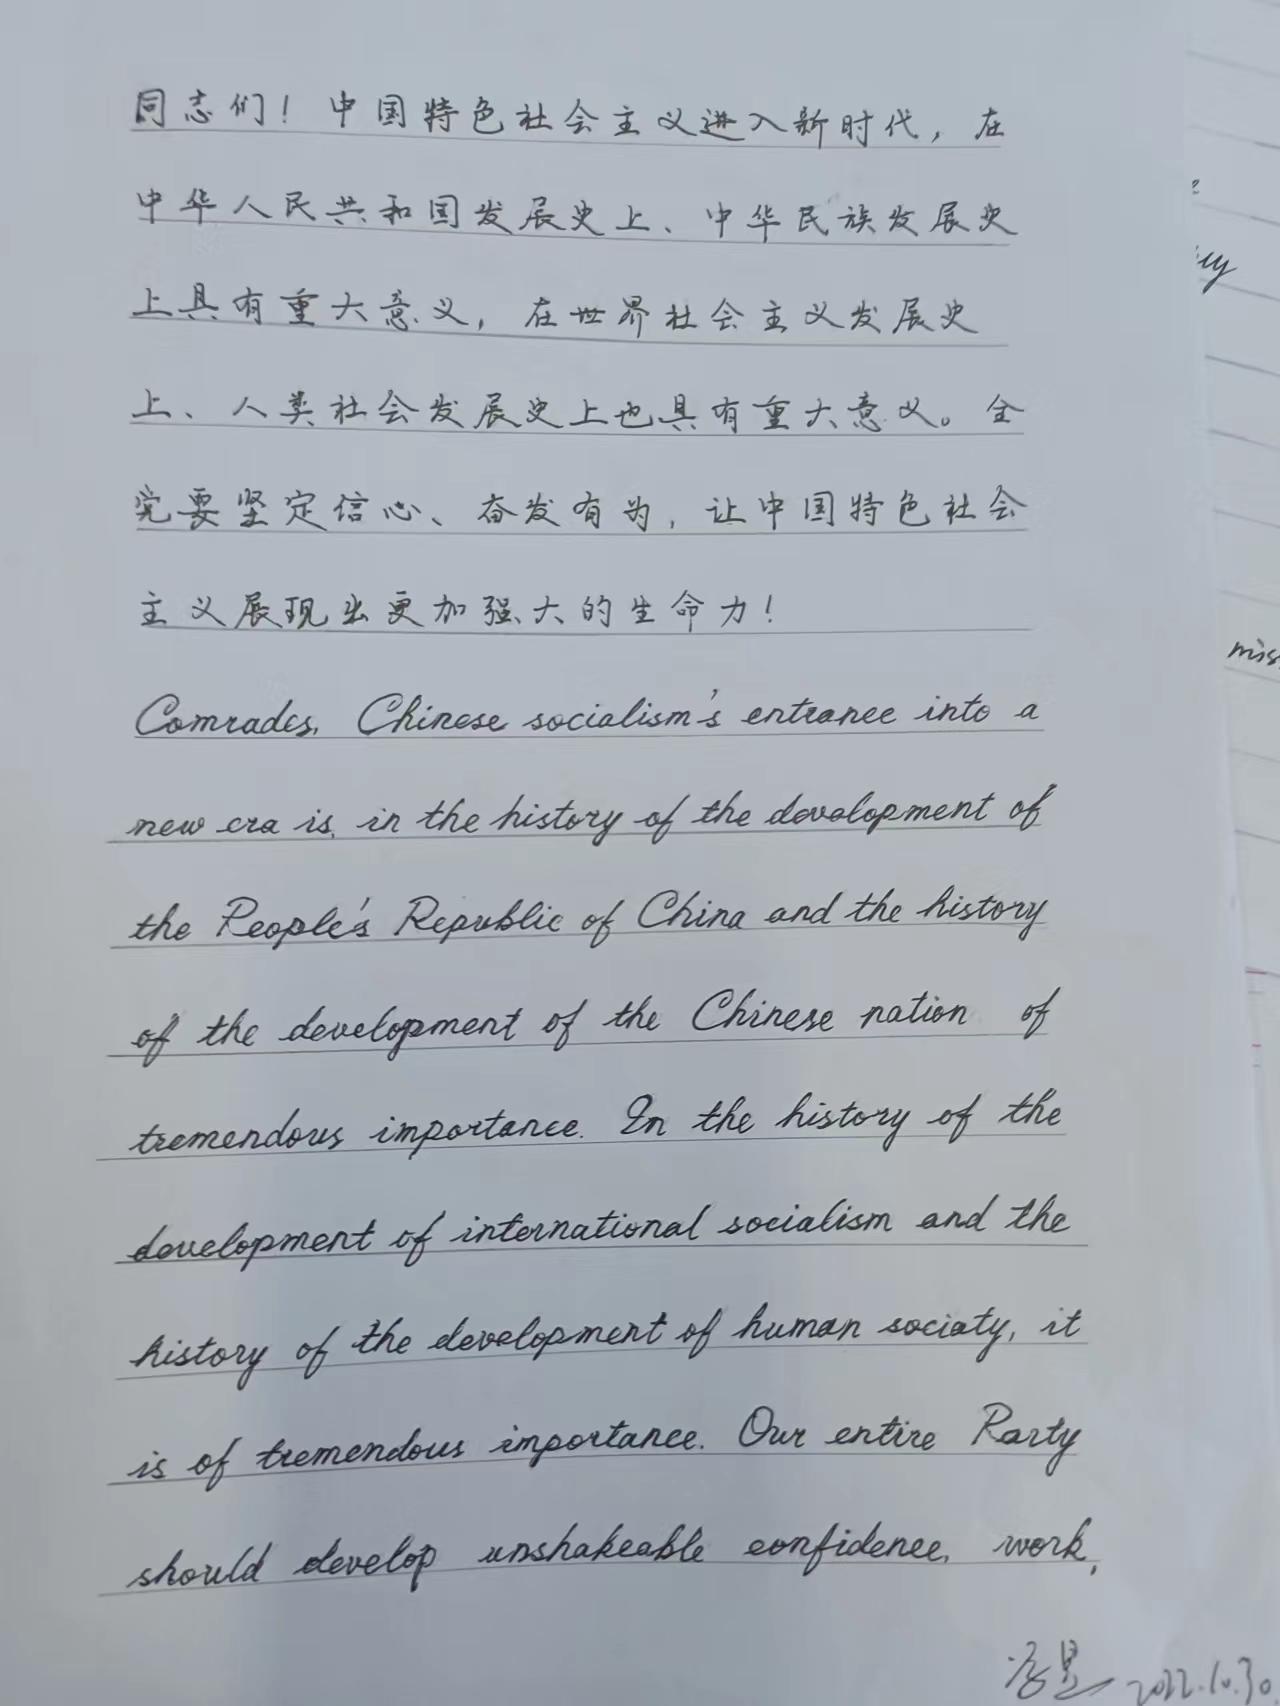 同志们！中国特色社会主义进入新时代，在
中华人民共和国发展史上、中华民族发展史
上具有重大意义，在世界社会主义发展史
上、人类社会发展史上也具有重大意义。全
党要坚定信心、奋发有为，让中国特色社会
主义展现出更加强大的生命力！
Comrades, Chinese socialism's entrance into a
new era is, in the history of the development of
the People's Republic of China and the history
of the development of the Chinese nation of
tremendous importance. In the history of the
development of international socialism and the
history of the development of human sociaty, it
is of tremendous importance. Our entire Party
should develop unshakeable confidence, work,
2022.10.30